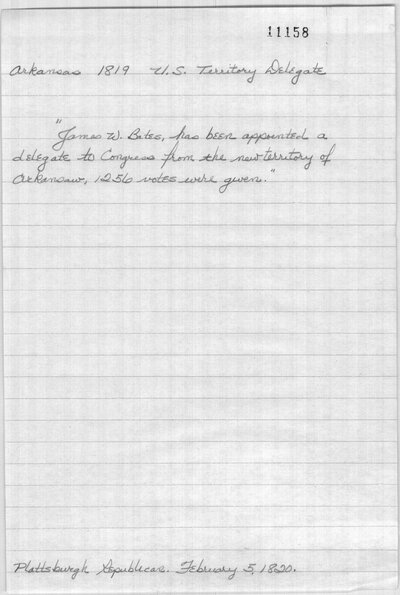 11158
Arkansas 1819 U.S. Territory Delegate
"James W. Bates, has been appointed a
delegate to Congress from the new territory of
Arkansaw, 1256 votes were given."
Plattsburgh Republican. February 5, 1820.